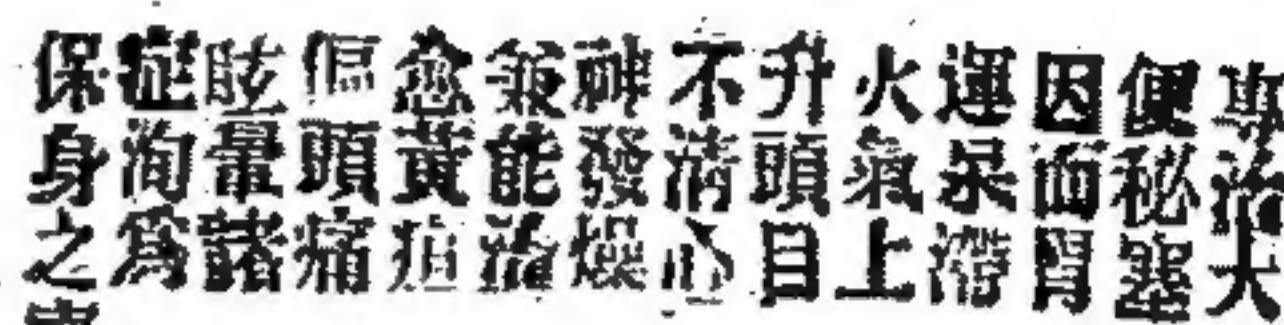 專治大
便秘塞
因而胃
運呆滯
火氣上
升頭目
不清心
神發燥
兼能治
愈黃疸
偏頭痛
眩暈諸
症洵爲
保身之